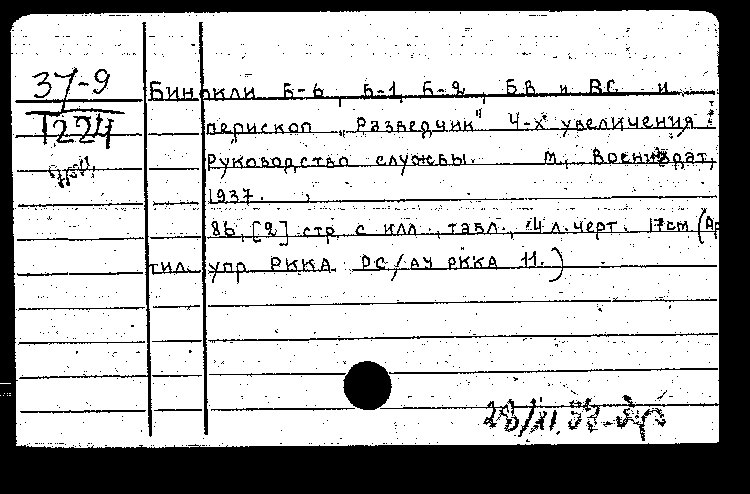 37-9
1224
Бинокли Б-6, Б-1, Б-2, БВ и ВС и
перископ „Разведчик" 4-х увеличения :
Руководство службы. М., Воениздат,
1937.
86, [2] стр. с илл., табл., 4 л. черт. 17см (Ар
тил. упр РККА ОС/АУ РККА 11.)